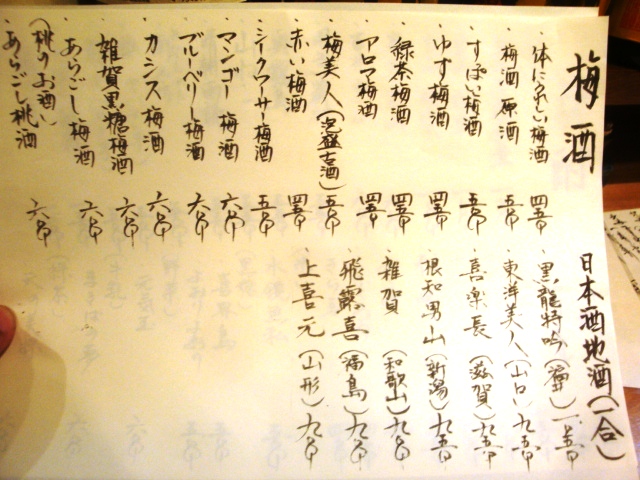 梅酒
・体にうれしい梅酒 四五〇
・梅酒原酒 五〇〇
・すっぱい梅酒 五〇〇
・ゆず梅酒 四五〇
・緑茶梅酒 四五〇
・アロマ梅酒 四五〇
・梅美人(泡盛古酒) 五〇〇
・赤い梅酒 四五〇
・シークワーサー梅酒 五〇〇
・マンゴー梅酒 六〇〇
・ブルーベリー梅酒 六〇〇
・カシス梅酒 六〇〇
・雑賀黒糖梅酒 六〇〇
・あらごし梅酒 六〇〇
(桃のお酒)
・あらごし桃酒 六〇〇
日本酒地酒(一合)
・黒龍特吟(福井)
・東洋美人(山口) 九五〇
・喜楽長(滋賀) 九五〇
・根知男山(新潟) 九五〇
・雑賀(和歌山) 九〇〇
・飛露喜(福島) 九〇〇
・上喜元(山形) 九〇〇